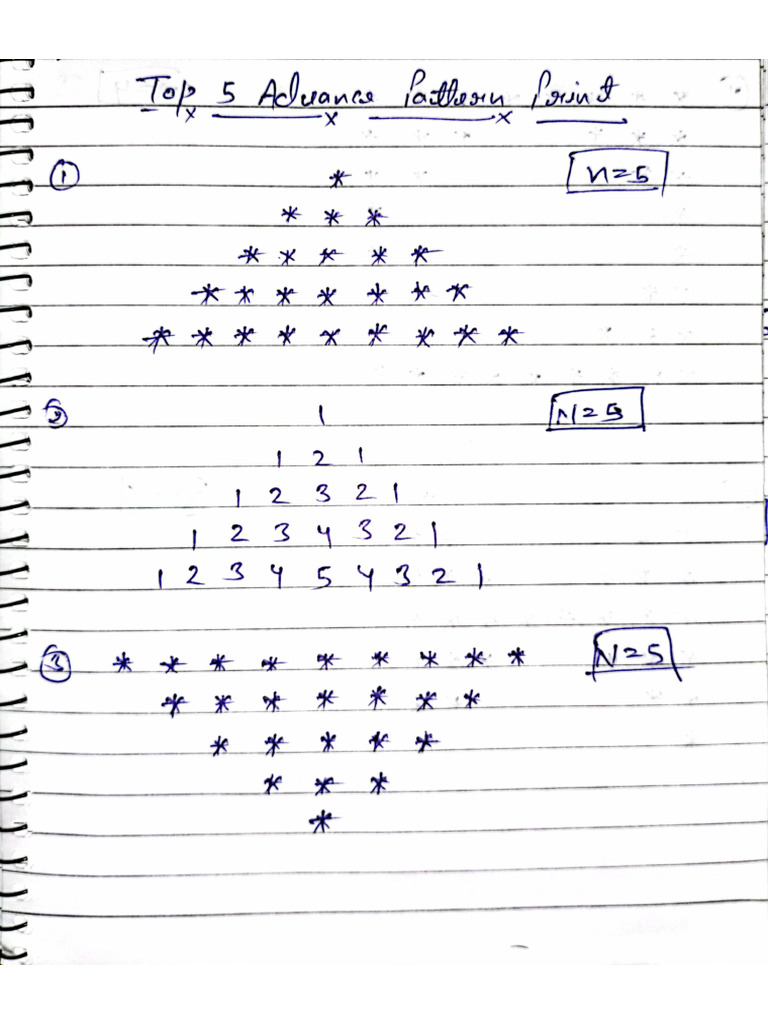 Top 5 Advance Pattern Print
① * n=5
* * *
* * * * *
* * * * * * *
* * * * * * * * *
② 1 N=5
1 2 1
1 2 3 2 1
1 2 3 4 3 2 1
1 2 3 4 5 4 3 2 1
③ * * * * * * * * * N=5
* * * * * * *
* * * * *
* * *
*